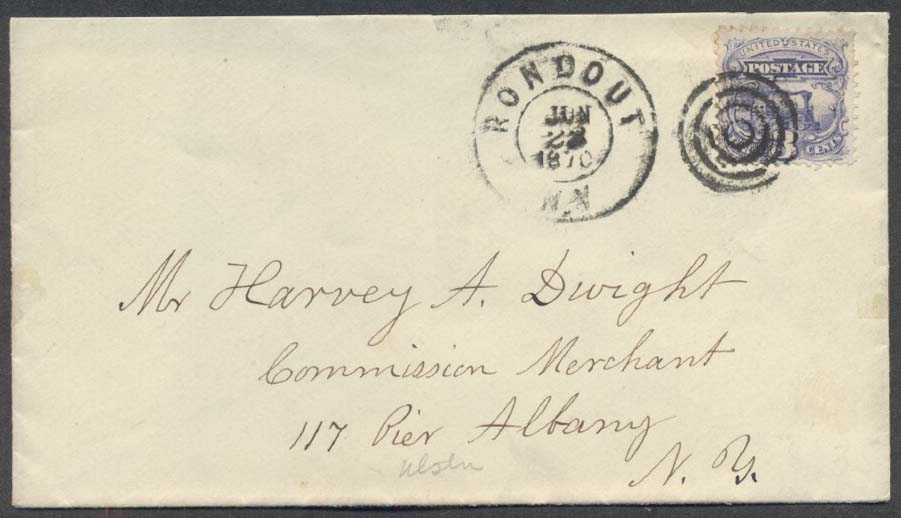 RONDOUT
JUN
22
1870
N.Y.
UNITED STATES
POSTAGE
CENTS
Mr Harvey A. Dwight
Commission Merchant
117 Pier Albany
N. Y.